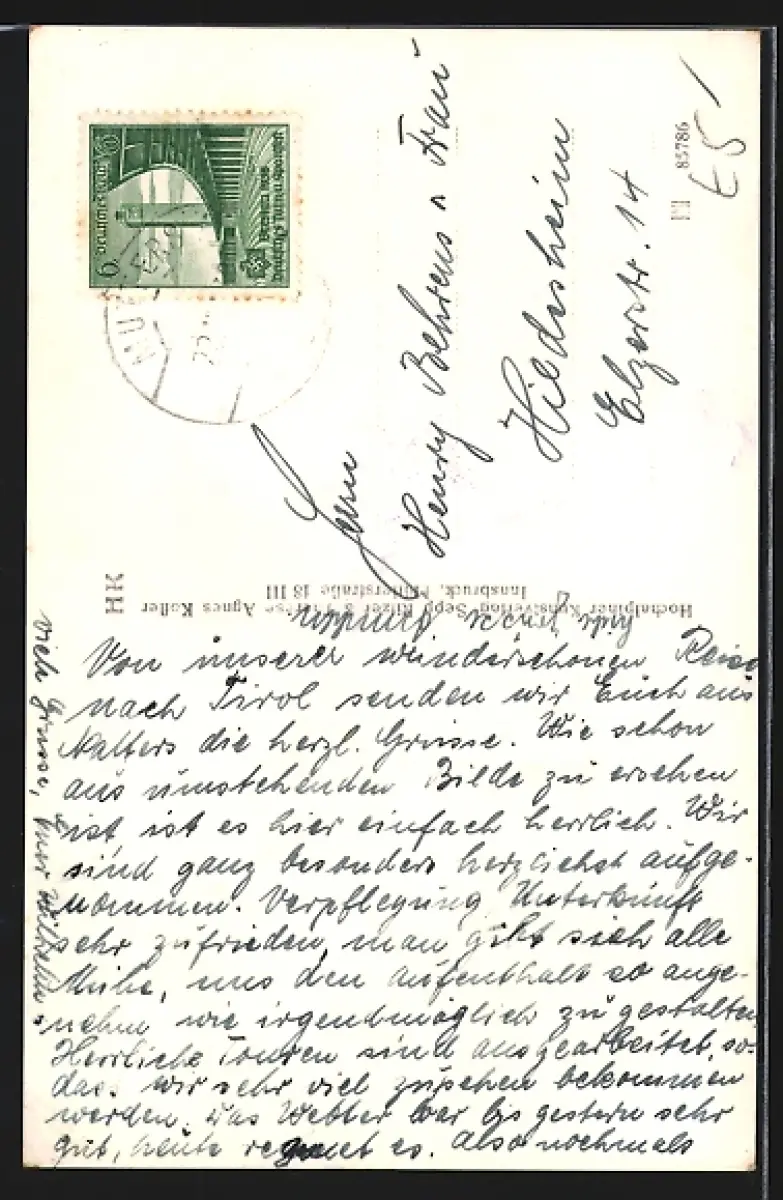 Herrn
Henry Behrens u Frau
Hildesheim
Elzerstr. 14
85786
Deutsches Reich
6
Breslau 1938
Hochalpiner Kunstverlag Sepp Ritzer & Therese Agnes Koller
Innsbruck, Müllerstraße 18 III
HK
Von unserer wunderschönen Reise
nach Tirol senden wir Euch aus
Natters die herzl. Grüsse. Wie schon
aus umstehenden Bilde zu ersehen
ist, ist es hier einfach herrlich. Wir
sind ganz besonders herzlichst aufge-
nommen. Verpflegung Unterkunft
sehr zufrieden, man gibt sich alle
Mühe, uns den Aufenthalt so ange-
nehm wie irgendmöglich zu gestalten.
Herrliche Touren sind ausgearbeitet, so-
dass wir sehr viel zusehen bekommen
werden. Das Wetter war bis gestern sehr
gut, heute regnet es. Also nochmals
viele Grüsse, Euer Wilhelm